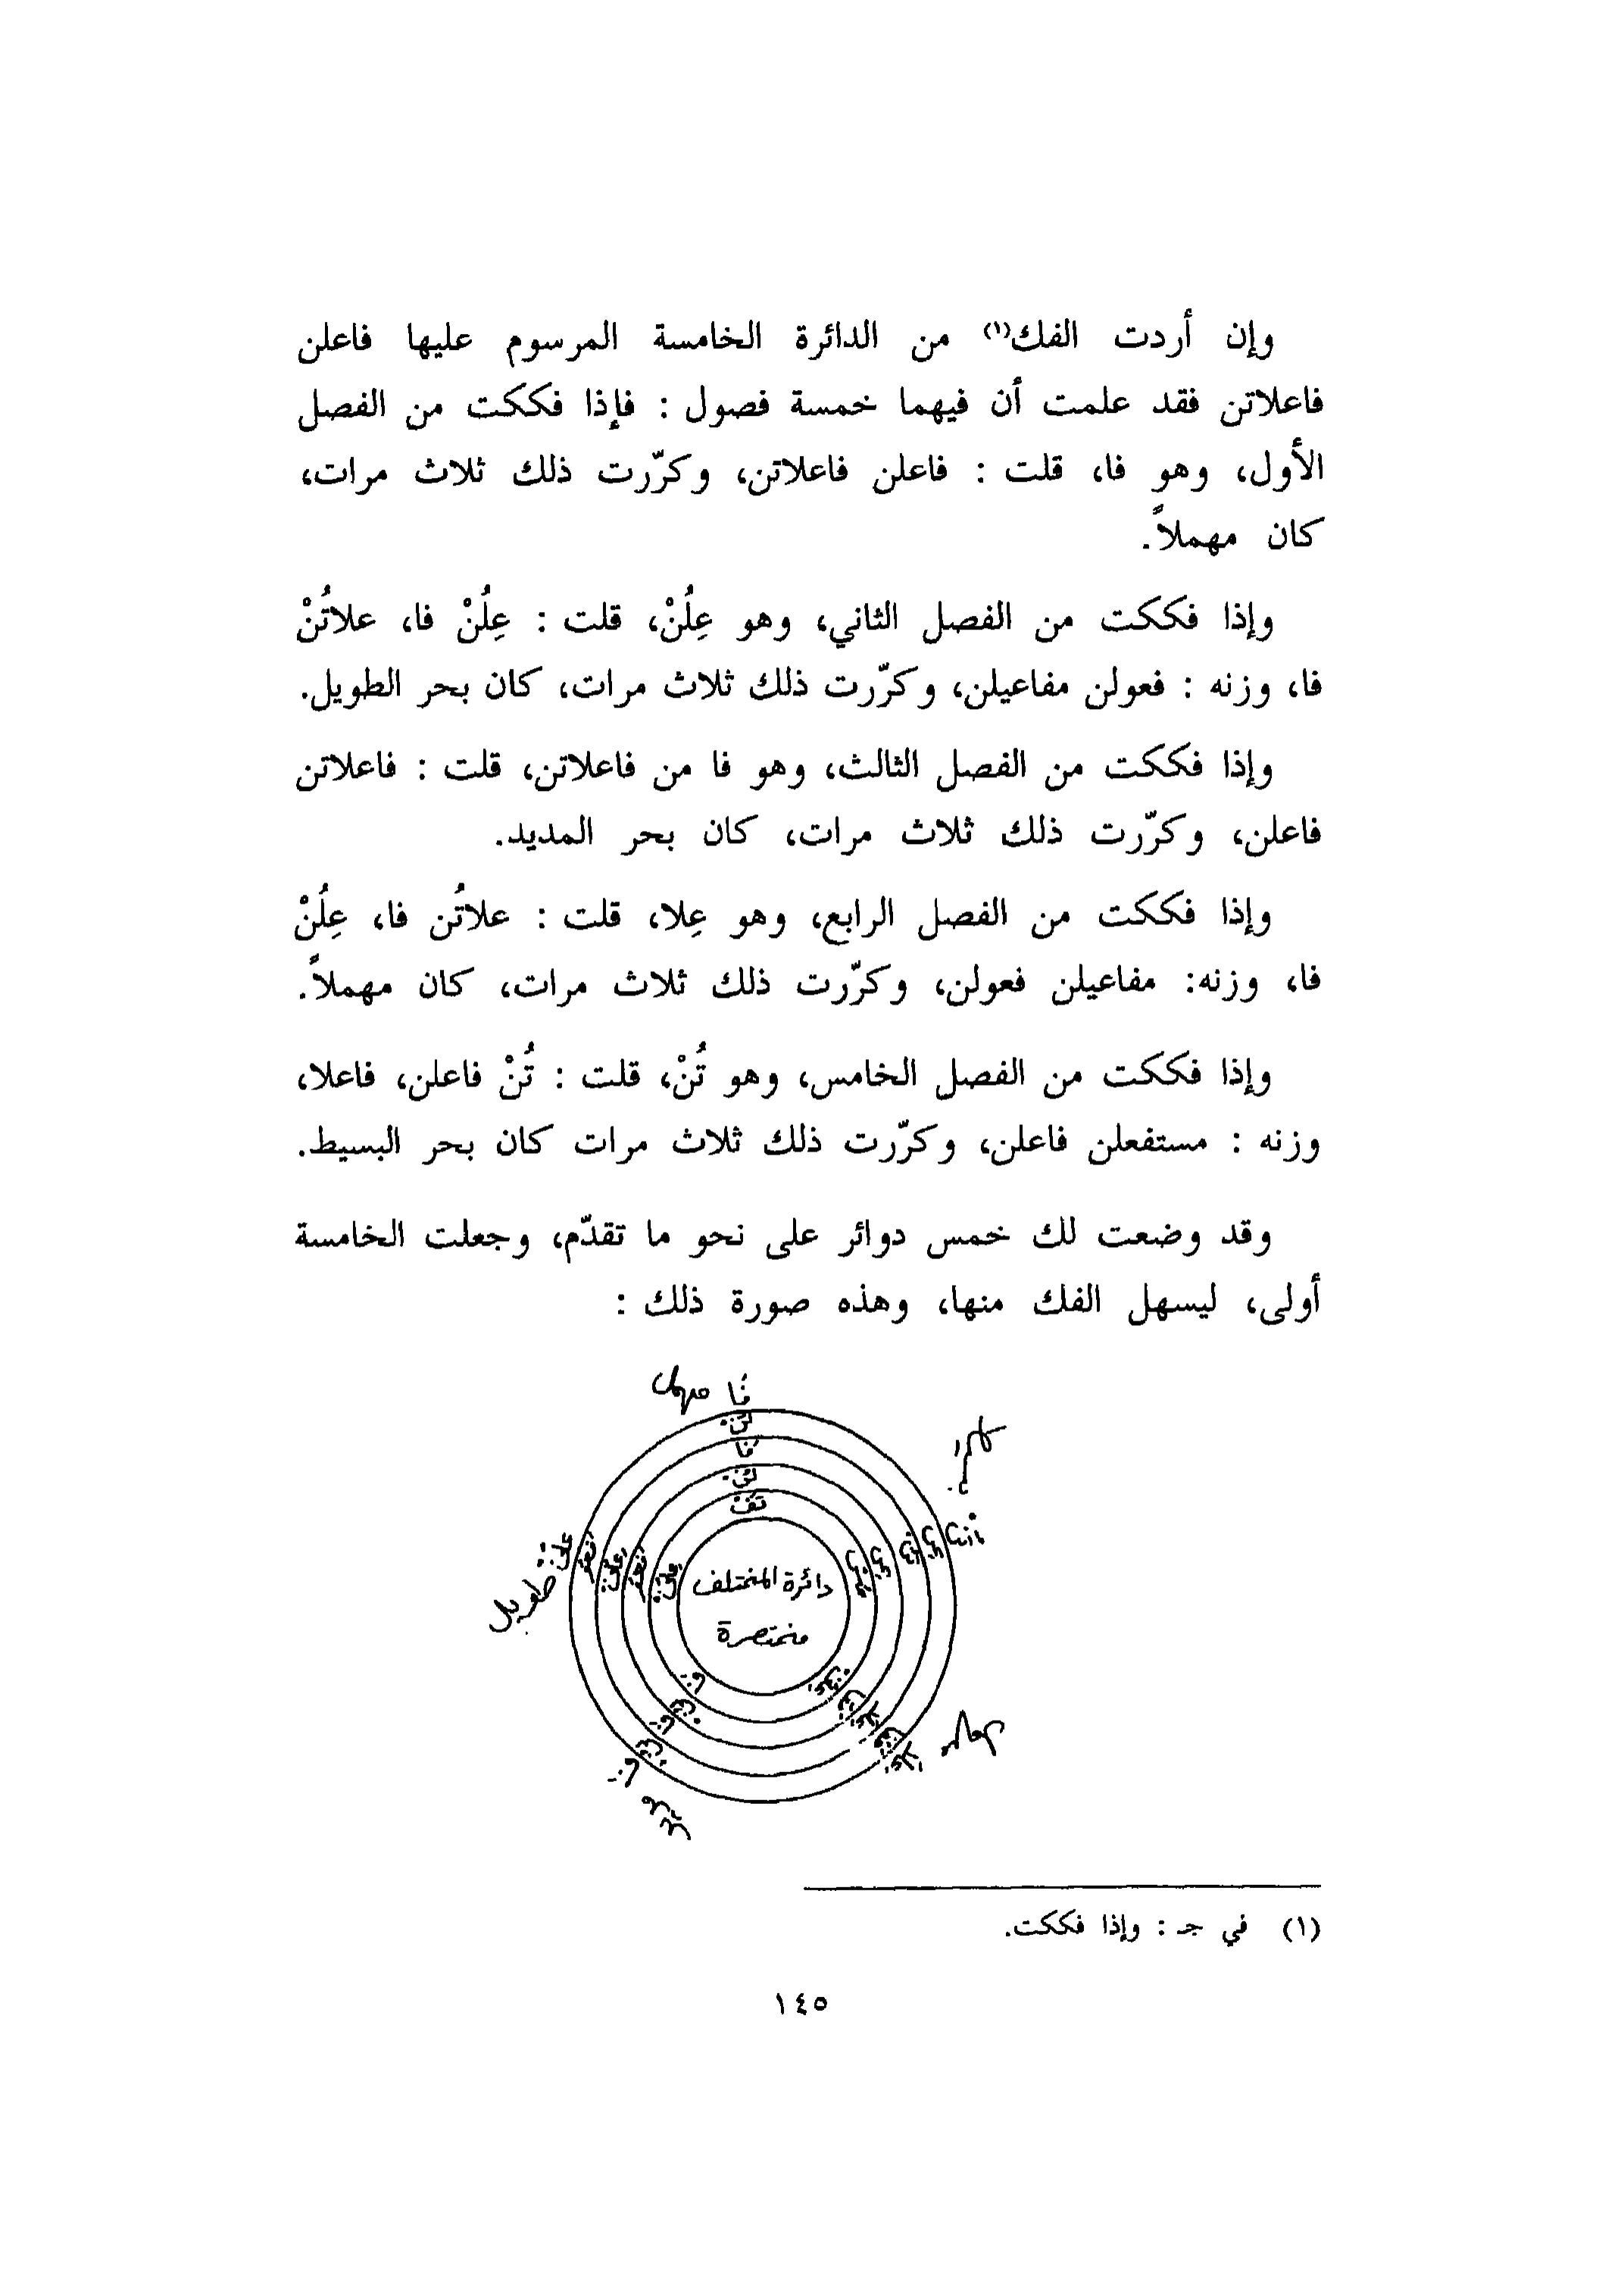 وإن أردت الفك(١) من الدائرة الخامسة المرسوم عليها فاعلن
فاعلاتن فقد علمت أن فيهما خمسة فصول : فإذا فككت من الفصل
الأول، وهو فا، قلت : فاعلن فاعلاتن، وكرّرت ذلك ثلاث مرات،
كان مهملاً.
وإذا فككت من الفصل الثاني، وهو عِلُنْ، قلت : عِلُنْ فا، علاتُنْ
فا، وزنه : فعولن مفاعيلن، وكرّرت ذلك ثلاث مرات، كان بحر الطويل.
وإذا فككت من الفصل الثالث، وهو فا من فاعلاتن، قلت : فاعلاتن
فاعلن، وكرّرت ذلك ثلاث مرات، كان بحر المديد.
وإذا فككت من الفصل الرابع، وهو عِلا، قلت : علاتُن فا، عِلُنْ
فا، وزنه: مفاعيلن فعولن، وكرّرت ذلك ثلاث مرات، كان مهملاً.
وإذا فككت من الفصل الخامس، وهو تُنْ، قلت : تُنْ فاعلن، فاعلا،
وزنه : مستفعلن فاعلن، وكرّرت ذلك ثلاث مرات كان بحر البسيط.
وقد وضعت لك خمس دوائر على نحو ما تقدّم، وجعلت الخامسة
أولى، ليسهل الفك منها، وهذه صورة ذلك :
فَا مهمل
لُنْ
فَا
لُنْ
تَفْ
علن طويل
دائرة المختلف
مختصرة
مهمل
(١) في جـ : وإذا فككت.
١٤٥